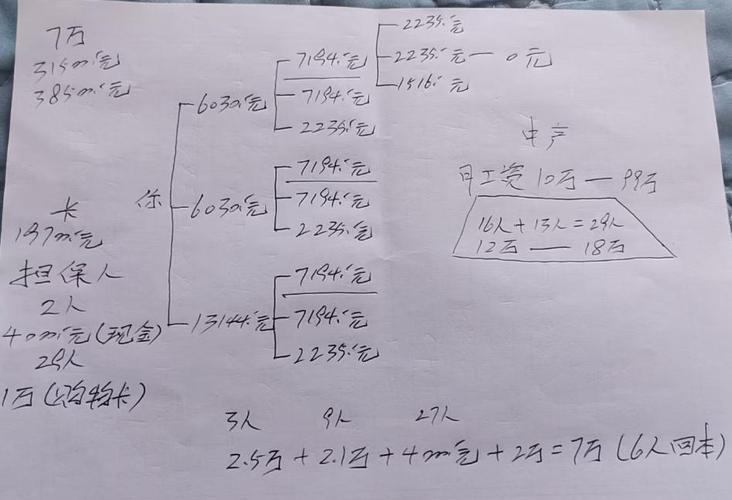 7万
315m元
385m元
卡
197m元
担保人
2人
40m元(现金)
29人
1万(购物卡)
你
6030元
6030元
13144元
7194元
7194元
2235元
7194元
7194元
2235元
7194元
7194元
2235元
2235元
2235元 — 0元
1516元
中产
月工资10万 — 99万
16人+13人=29人
12万 — 18万
3人 9人 27人
2.5万+2.1万+4m元+2万=7万(6人回本)